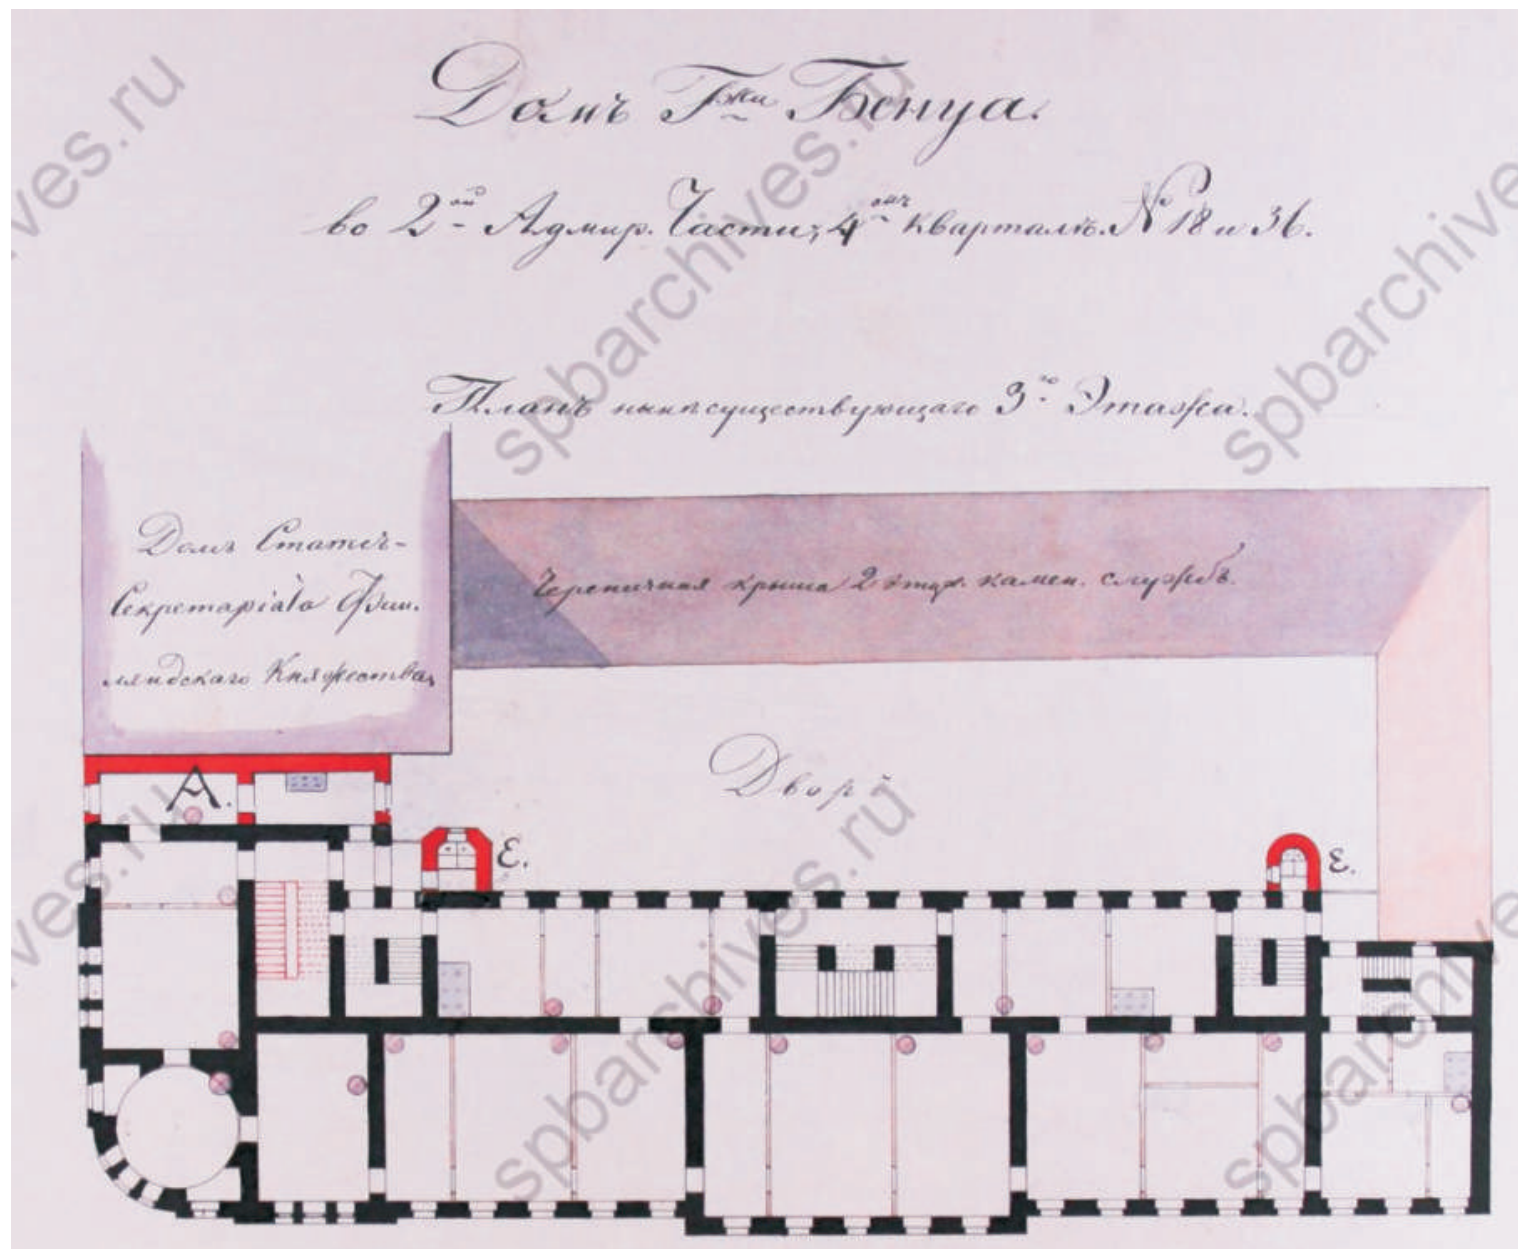 Домъ Г-жи Бенуа.
во 2ой Адмир. Части, 4омъ кварталѣ. N 18 и 36.
Планъ нынѣ существующаго 3го Этажа.
Домъ Статсъ-
Секретаріата Фин.
ляндскаго Княжества
Черепичная крыша 2 этаж. камен. службъ.
Дворъ
А.
Е.
Е.
spbarchives.ru
spbarchives.ru
spbarchives.ru
spbarchives.ru